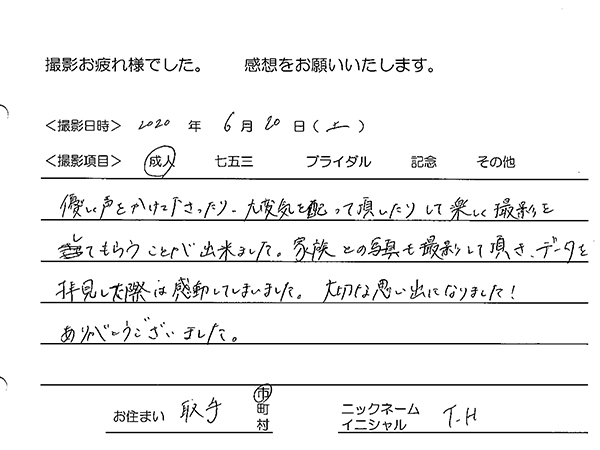 撮影お疲れ様でした。 感想をお願いいたします。
<撮影日時> 2020 年 6 月 20 日(土)
<撮影項目> 成人 七五三 ブライダル 記念 その他
優しく声をかけて下さったり、大変気を配って頂いたりして楽しく撮影を
してもらうことが出来ました。家族との写真も撮影して頂き、データを
拝見した際は感動してしまいました。大切な思い出になりました!
ありがとうございました。
お住まい 取手 市町村 ニックネーム イニシャル T.H